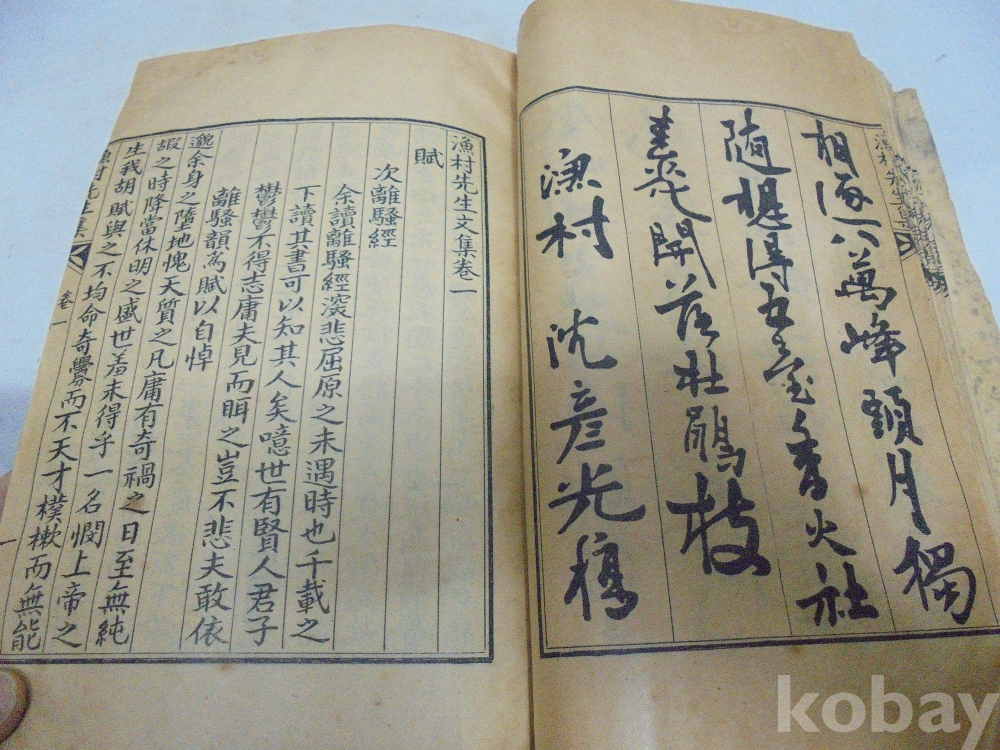 相逐八萬峰頭月獨
隨想得玉堂香火社
花開落杜鵑枝
漁村 沈彦光稿
漁村先生文集卷一
賦
次離騷經
余讀離騷經深悲屈原之未遇時也千載之
下讀其書可以知其人矣噫世有賢人君子
鬱鬱不得志庸夫見而眲之豈不悲夫敢依
離騷韻爲賦以自悼
邈余身之墮地愧天質之凡庸有奇禍之日至無純
嘏之時降當休明之盛世羞未得乎一名憫上帝之
生我胡賦與之不均命奇釁而不天才樸樕而無能
漁村先生集
卷一
一
kobay